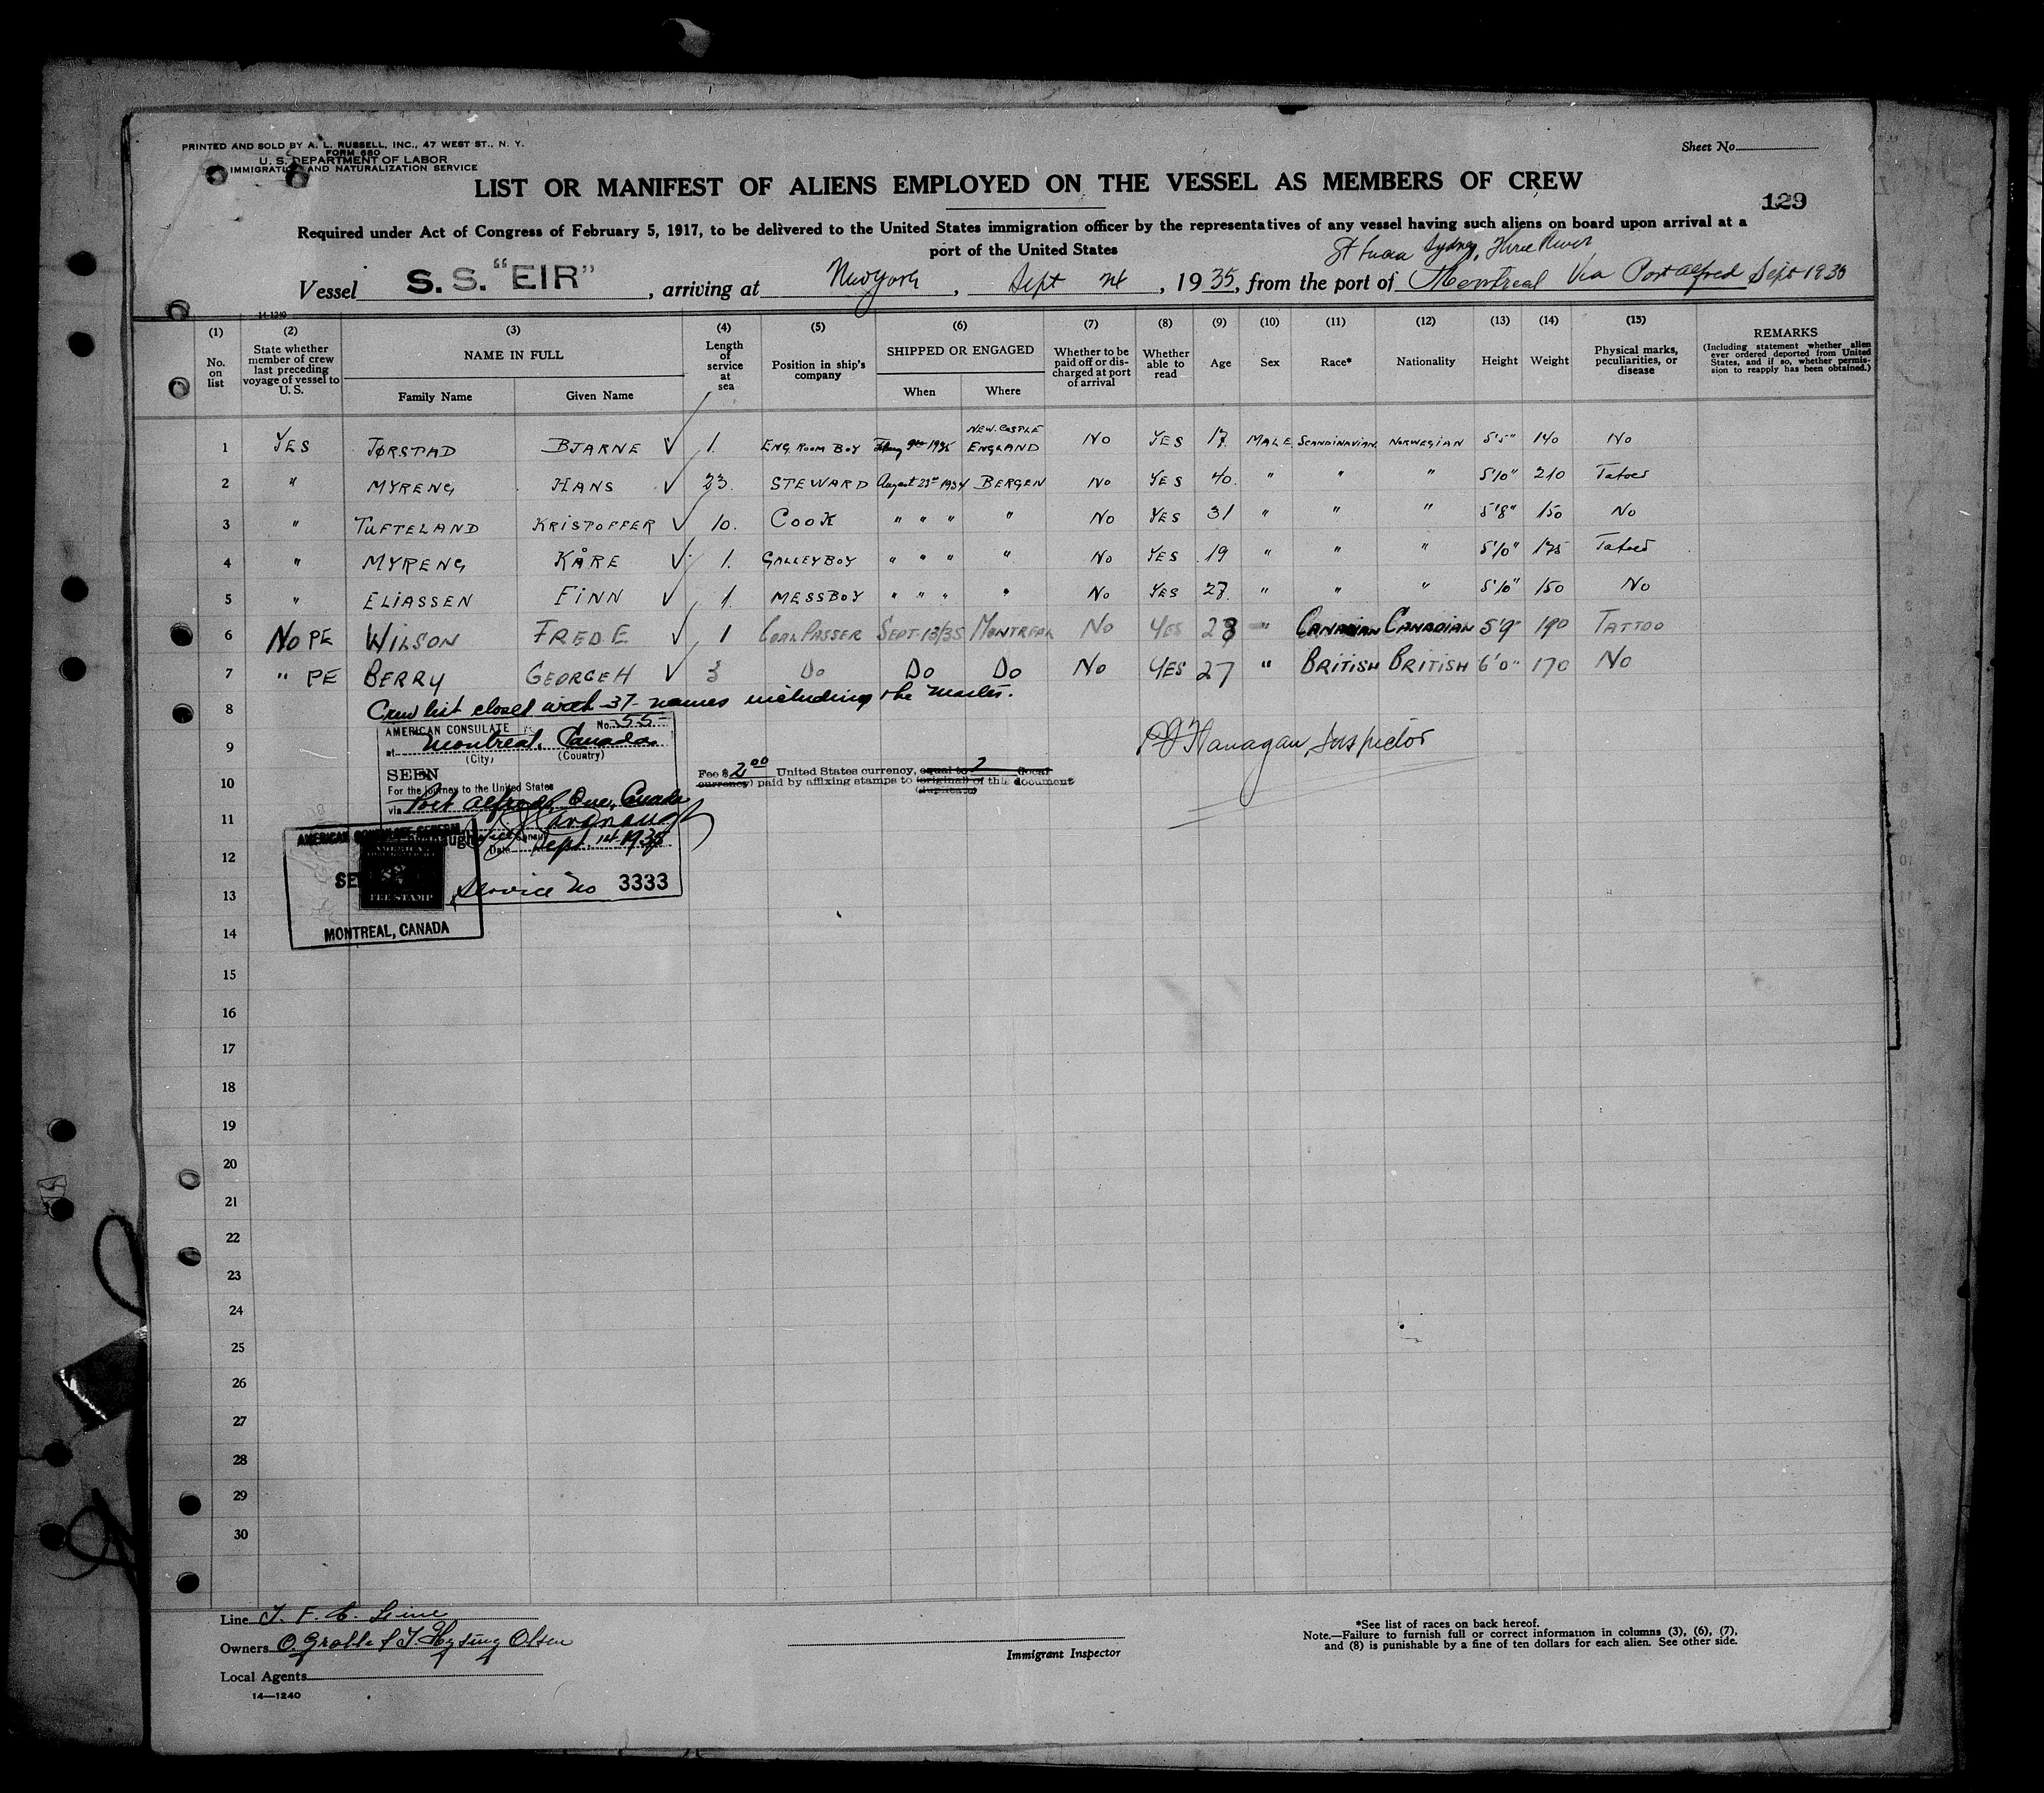 PRINTED AND SOLD BY A. L. RUSSELL, INC., 47 WEST ST., N. Y.
FORM 680
U. S. DEPARTMENT OF LABOR
IMMIGRATION AND NATURALIZATION SERVICE
Sheet No.
LIST OR MANIFEST OF ALIENS EMPLOYED ON THE VESSEL AS MEMBERS OF CREW
129
Required under Act of Congress of February 5, 1917, to be delivered to the United States immigration officer by the representatives of any vessel having such aliens on board upon arrival at a
port of the United States
St Lucia Sydney, Three River
Vessel S. S. "EIR", arriving at New York, Sept 24, 1935, from the port of Montreal Via Port Alfred Sept 1935
14-1240
(1) (2) (3) (4) (5) (6) (7) (8) (9) (10) (11) (12) (13) (14) (15)
No. on list
State whether member of crew last preceding voyage of vessel to U. S.
NAME IN FULL
Family Name Given Name
Length of service at sea
Position in ship's company
SHIPPED OR ENGAGED
When Where
Whether to be paid off or discharged at port of arrival
Whether able to read
Age
Sex
Race*
Nationality
Height
Weight
Physical marks, peculiarities, or disease
REMARKS
(Including statement whether alien ever ordered deported from United States, and if so, whether permission to reapply has been obtained.)
1 YES TØRSTAD BJARNE √ 1. ENG. ROOM BOY 1935 NEW. CASTLE ENGLAND No YES 17 MALE SCANDINAVIAN NORWEGIAN 5'5" 140 No
2 " MYRENG HANS √ 23. STEWARD August 23rd 1934 BERGEN No YES 40. " " " 5'10" 210 Tatoed
3 " TUFTELAND KRISTOFFER √ 10. COOK " " " " No YES 31 " " " 5'8" 150 No
4 " MYRENG KÅRE √ 1. GALLEYBOY " " " " No YES 19 " " " 5'10" 175 Tatoed
5 " ELIASSEN FINN √ 1. MESSBOY " " " " No YES 27 " " " 5'10" 150 No
6 No PE WILSON FRED E √ 1 COAL PASSER SEPT-13/35 MONTREAL No YES 28 " CANADIAN CANADIAN 5'9" 190 TATTOO
7 " PE BERRY GEORGE H √ 3 Do Do Do No YES 27 " BRITISH BRITISH 6'0" 170 No
8 Crew list closed with -37- names including the Master.
AMERICAN CONSULATE No. 55-
9 at Montreal, Canada.
(City) (Country)
Flanagan, Inspector
SEEN
10 Fee $ 2.00 United States currency, equal to 2 (local
currency) paid by affixing stamps to (original) of this document
(duplicate)
For the journey to the United States
via Port Alfred, Que, Canada
11 Cavanaugh
AMERICAN CONSULATE GENERAL
Vice Consul
12 Date Sept. 14 1935
FEE STAMP
13 Service No 3333
14 MONTREAL, CANADA
15
16
17
18
19
20
21
22
23
24
25
26
27
28
29
30
Line T. F. C. Line
Owners O Grolle & T. Hysing Olsen
Local Agents
14—1240
Immigrant Inspector
*See list of races on back hereof.
Note.—Failure to furnish full or correct information in columns (3), (6), (7),
and (8) is punishable by a fine of ten dollars for each alien. See other side.